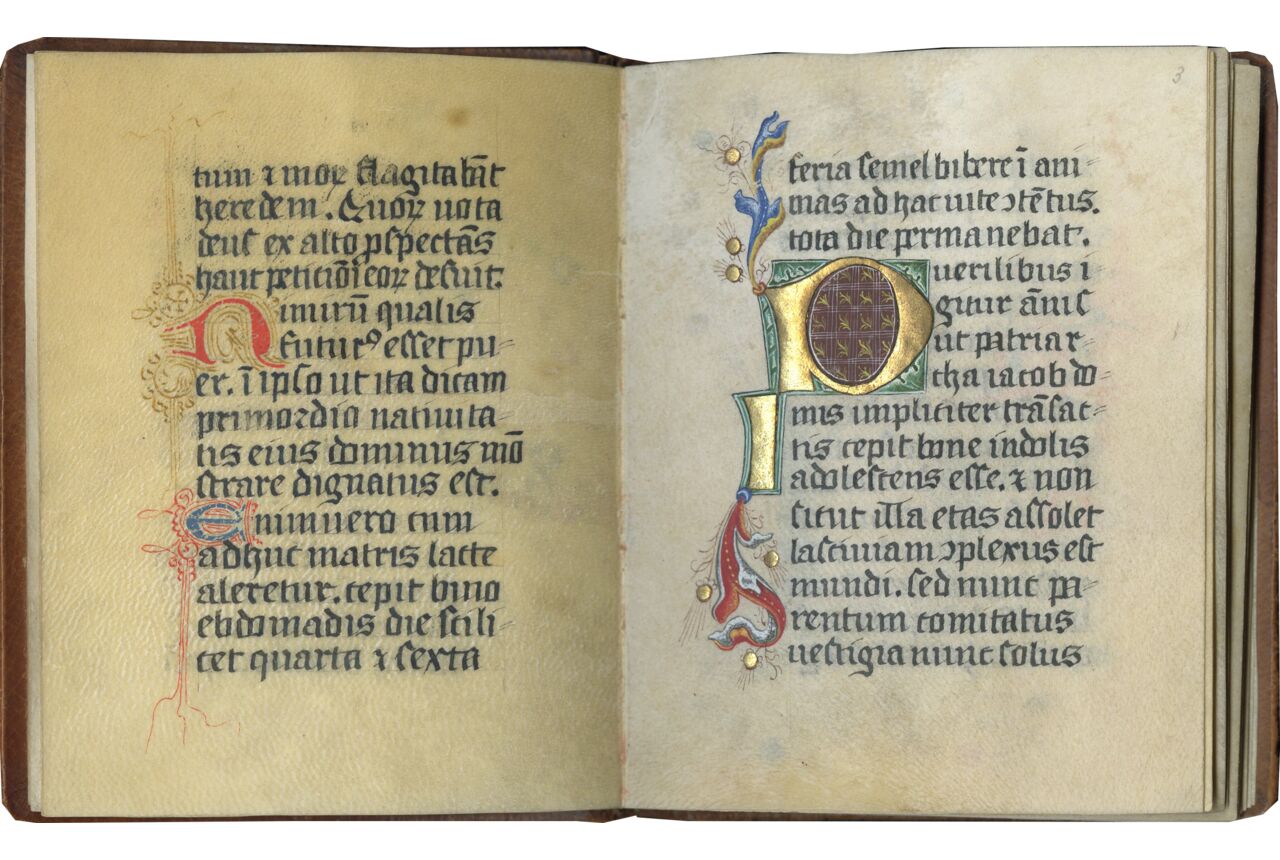 tum ⁊ moꝝ flagitabāt
heredem. Quoꝝ uota
deus ex alto ꝑspectās
haut peticiōi eoꝝ defuit.
Nimirū qualis
futurꝰ esset pu-
er. ī ipso ut ita dicam
primordio natiuita-
tis eius dominus mō
strare dignatus est.
Enimuero cum
adhuc matris lacte
aleretur. cepit bino
ebdomadis die scili-
cet quarta ⁊ sexta
3
feria semel bibere ī ani-
mas ad hac uite ↄtētus.
tota die permanebat.
Puerilibus i-
gitur ānis
ut patriar-
cha iacob do-
mi simpliciter trāsac-
tis cepit bone indolis
adolescens esse. ⁊ non
sicut illa etas assolet
lasciuiam ↄplexus est
mundi. sed nunc pa-
rentum comitatus
uestigia nunc solus